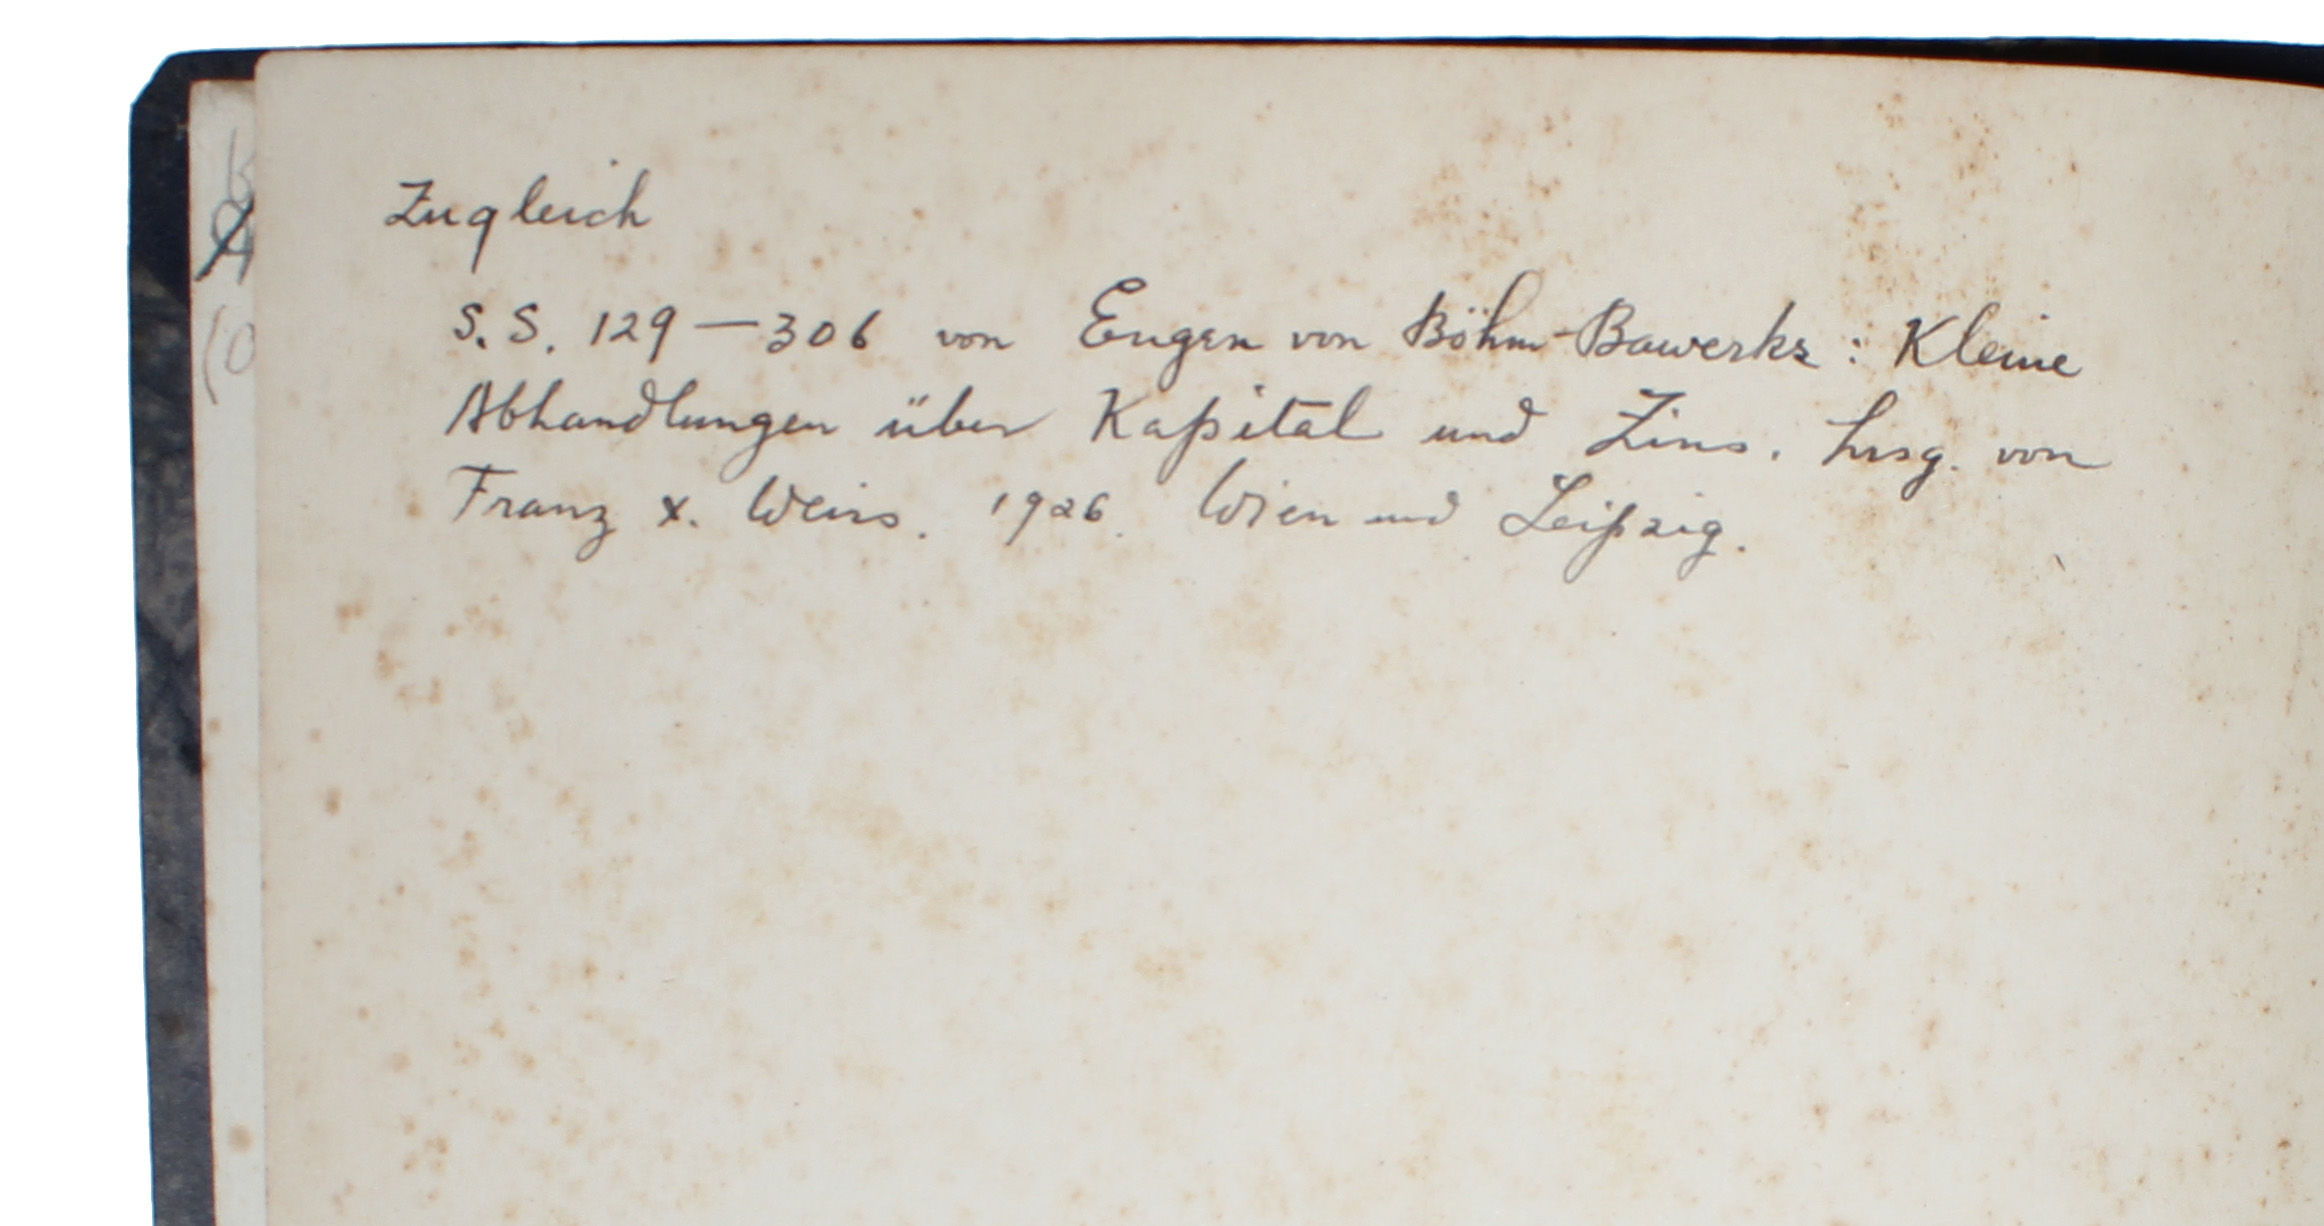 Zugleich
S. S. 129 — 306 von Eugen von Böhm-Bawerks : Kleine
Abhandlungen über Kapital und Zins. hrsg. von
Franz X. Weiss. 1926. Wien und Leipzig.